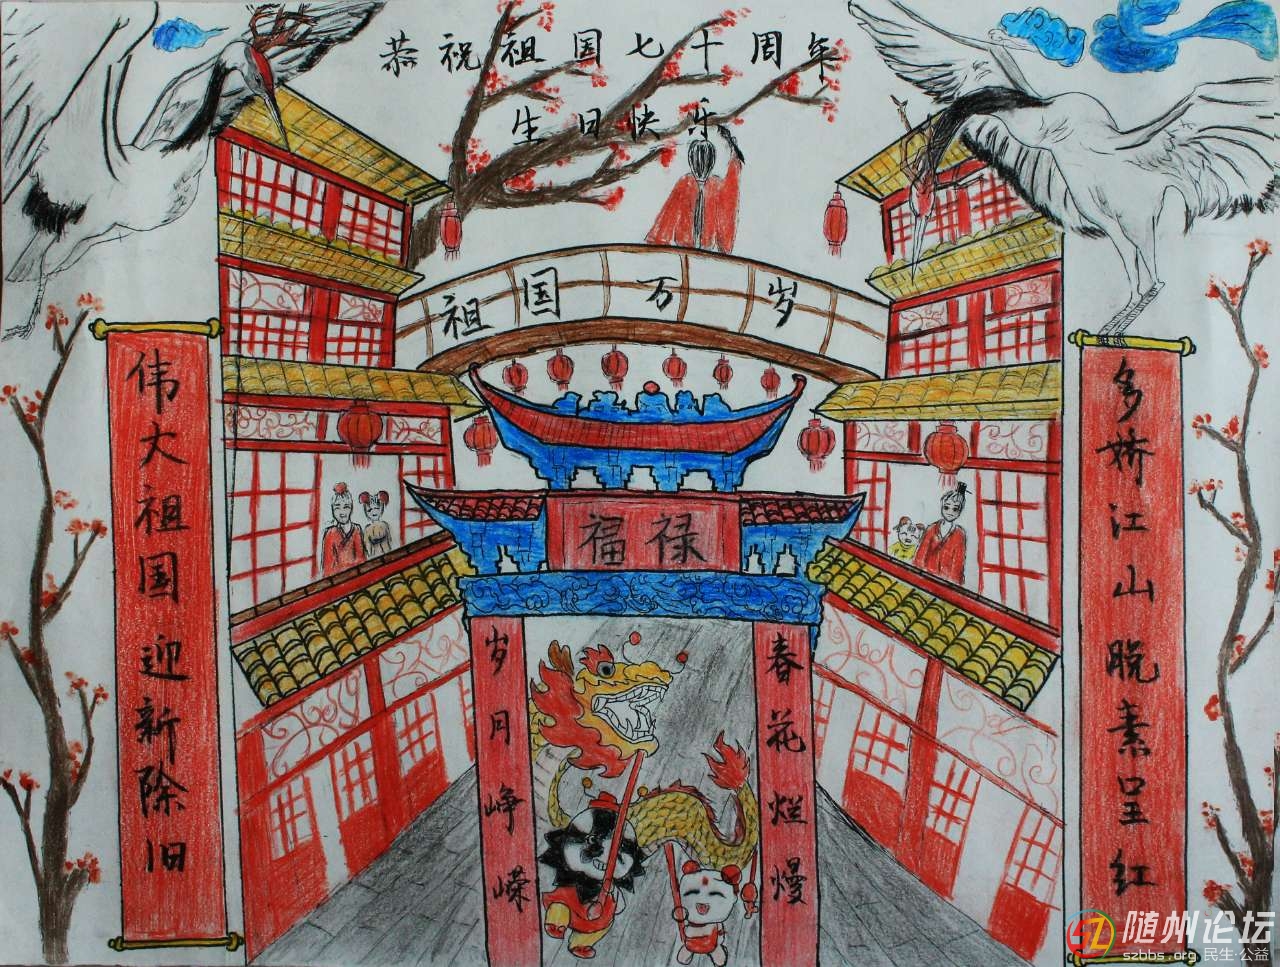 恭祝祖国七十周年
生日快乐
祖国万岁
伟大祖国迎新除旧
多娇江山脱素呈红
福禄
岁月峥嵘
春花烂熳
随州论坛
szbbs.org 民生·公益